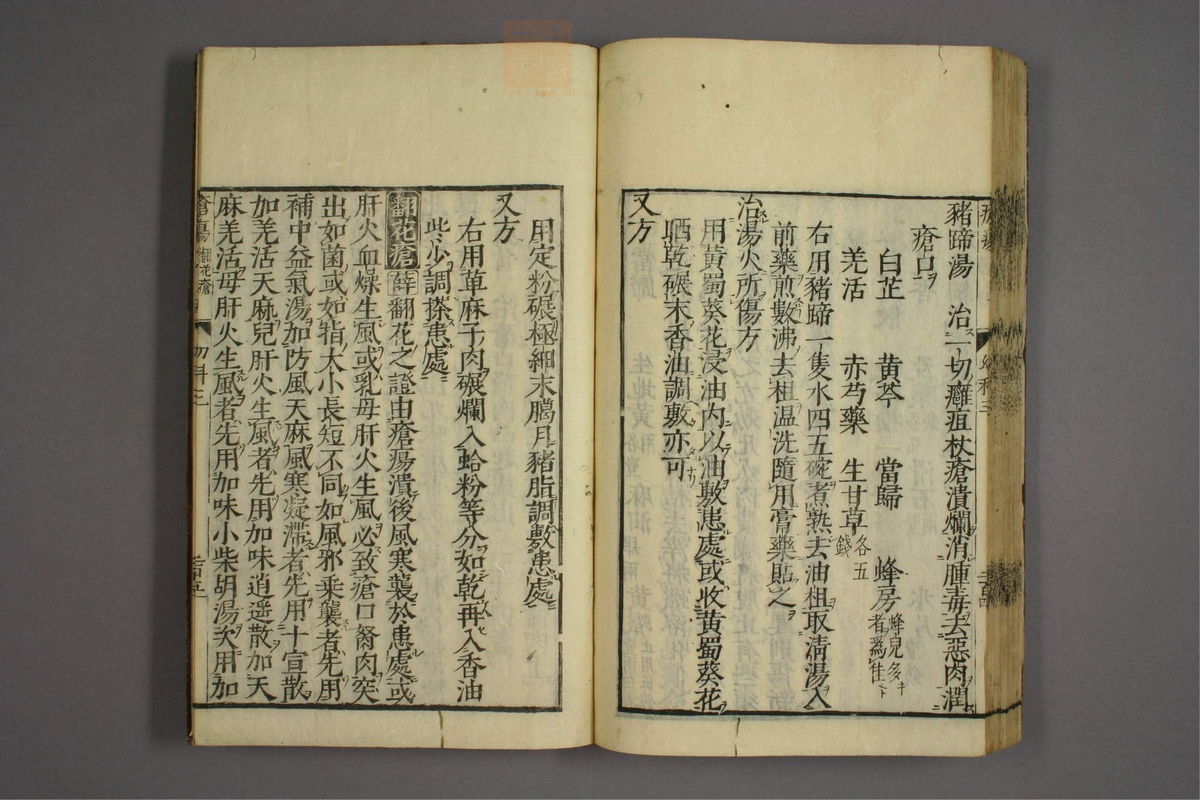 豬蹄湯　治一切癰疽杖瘡潰爛消腫毒去惡肉潤
瘡口
白芷　黄芩　當歸　蜂房蜂兒多者爲佳
羌活　赤芍藥　生甘草各五錢
右用豬蹄一隻水四五碗煮熟去油柤取淸湯入
前藥煎數沸去柤温洗隨用膏藥貼之
治湯火所傷方
用黄蜀葵花浸油内以油敷患處或收黄蜀葵花
晒乾碾末香油調敷亦可
又方
用定粉碾極細末臈月豬脂調敷患處
又方
右用萆麻子肉碾爛入蛤粉等分如乾再入香油
些少調搽患處
翻花瘡 薛翻花之證由瘡瘍潰後風寒襲於患處或
肝火血燥生風或乳母肝火生風必致瘡口胬肉突
出如菌或如指大小長短不同如風邪乘襲者先用
補中益氣湯加防風天麻風寒凝滯者先用十宣散
加羌活天麻兒肝火生風者先用加味逍遥散加天
麻羌活母肝火生風者先用加味小柴胡湯次用加
瘡瘍　翻花瘡